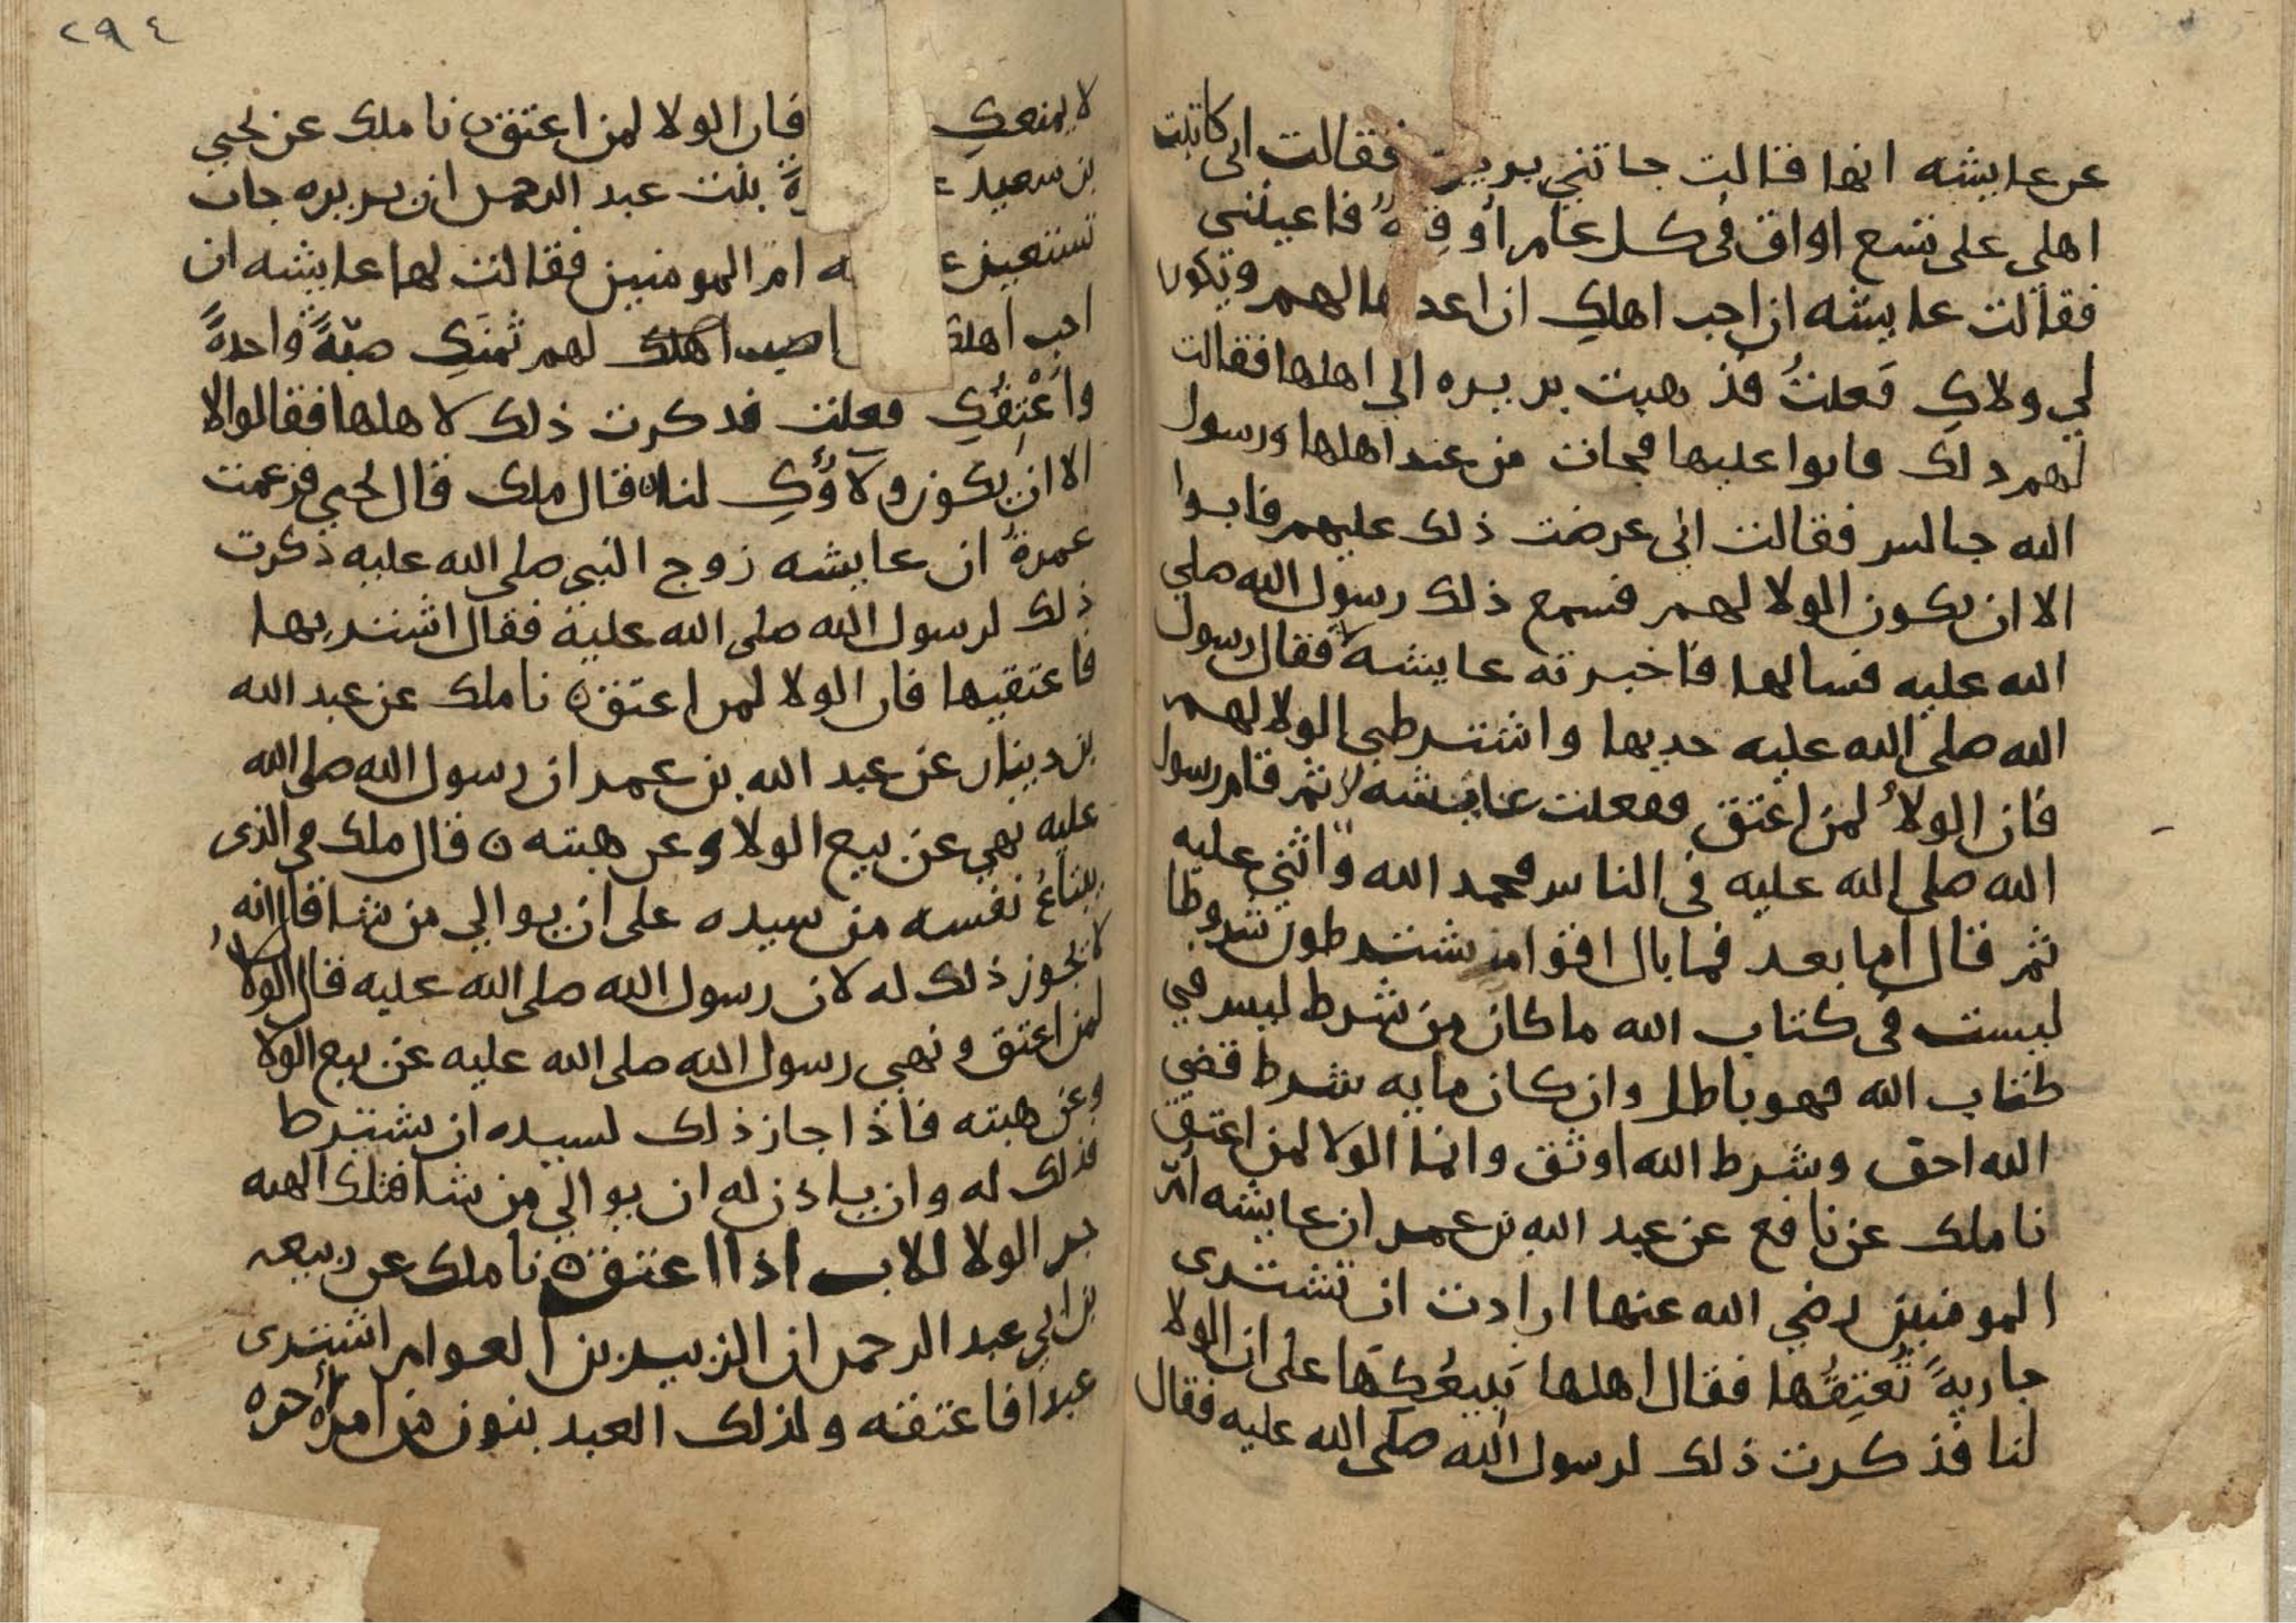 عن عايشه انها قالت جاتني بريره فقالت اني كاتبت
اهلي على تسع اواق في كل عام أوقِيّةٌ فاعينني
فقالت عايشه ان احب اهلكِ ان اعدها لهم ويكون
لي ولاكِ فَعلتُ فذهبت بريره الي اهلها فقالت
لهم ذلك فابوا عليها فجات من عند اهلها ورسول
الله جالس فقالت اني عرضت ذلك عليهم فابوا
الا ان يكون الولا لهم فسمع ذلك رسول الله صلي
الله عليه فسالها فاخبرته عايشة فقال رسول
الله صلي الله عليه خديها واشترطي الولا لهم
فان الولاُ لمن اعتق ففعلت عايشه ثم قام رسول
الله صلي الله عليه في الناس فحمد الله واثني عليه
ثم قال اما بعد فما بال اقوام يشترطون شروطا
ليست في كتاب الله ما كان من شرط ليس في
كتاب الله فهو باطل وان كان مايه شرط قضي
الله احق وشرط الله اوثق وانما الولا لمن اعتق
نا ملك عن نافع عن عبد الله بن عمر ان عايشه امّ
المومنين رضي الله عنها ارادت ان تشتري
جاريةً تُعتِقُها فقال اهلها نَبيعُكِهَا على ان الولا
لنا فذكرت ذلك لرسول الله صلى الله عليه فقال
٢٩٤
لا يمنعكِ فان الولا لمن اعتق ن نا ملك عن يحيي
بن سعيد بنت عبد الرحمن ان بريره جات
تستعين ام المومنين فقالت لها عايشه ان
احب اهلك اصب لهم ثمنَكِ صبّةً واحدةً
واُعْتِقُكِ فعلت فذكرت ذلك لاهلها فقالوا لا
الا ان يكون ولاؤُكِ لنا ن قال ملك قال يحيي فزعمت
عمرةُ ان عايشه زوج النبي صلى الله عليه ذكرت
ذلك لرسول الله صلى الله عليه فقال اشتريها
فاعتقيها فان الولا لمن اعتق ن نا ملك عن عبد الله
بن دينار عن عبد الله بن عمر ان رسول الله صلى الله
عليه نهي عن بيع الولا وعن هبته ن قال ملك في الذي
يبتاعُ نفسه من سيده على ان يوالي من شا قال انه
لا يجوز ذلك له لان رسول الله صلى الله عليه قال الولاُ
لمن اعتق ونهي رسول الله صلى الله عليه عن بيع الولا
وعن هبته فاذا جاز ذلك لسيده ان يشترط
ذلك له وان ياذن له ان يوالي من شا فتلك الهبه
جر الولا للاب اذا اعتق ن نا ملك عن ربيعه
بن ابي عبد الرحمن ان الزبير بن العوام اشترى
عبدا فاعتقه ولذلك العبد بنون من امرأه حره